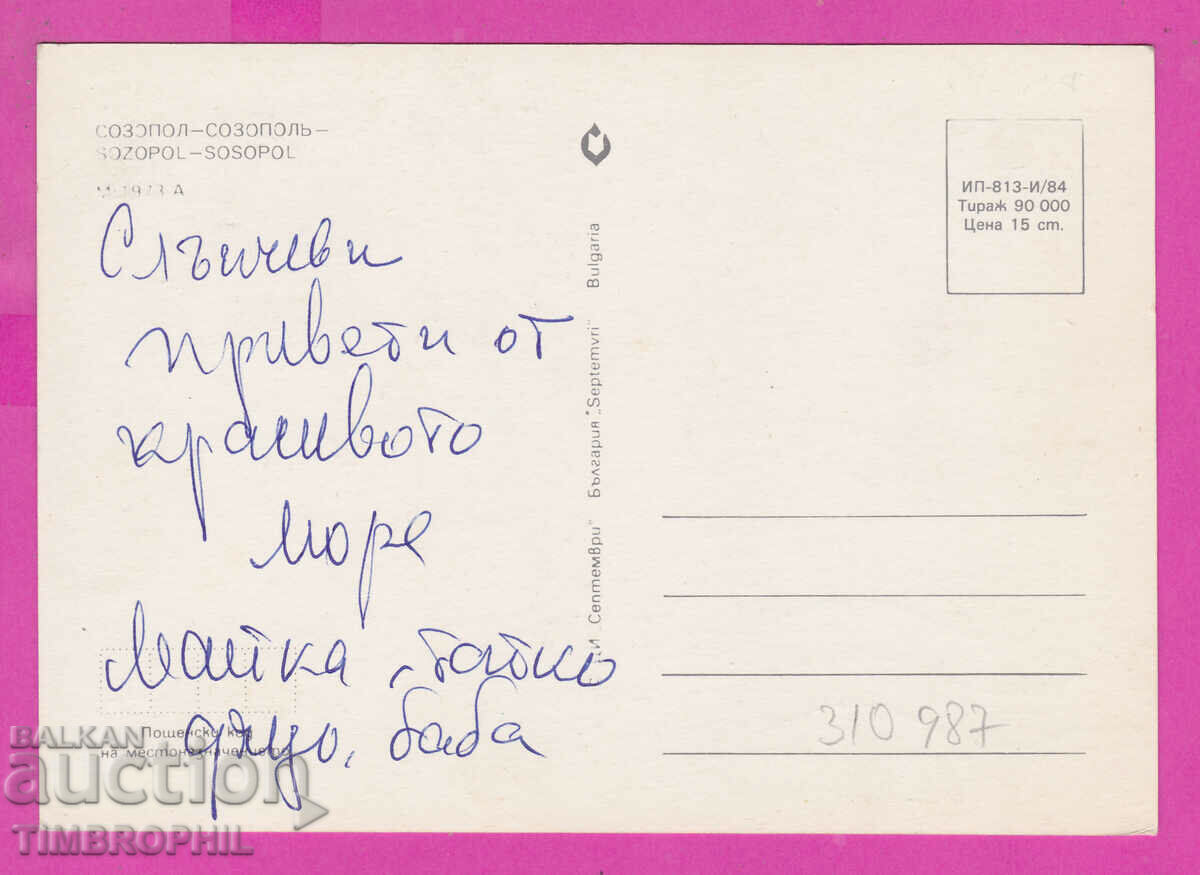 СОЗОПОЛ—СОЗОПОЛЬ—
SOZOPOL—SOSOPOL
М-1973-А
Слънчеви
привети от
красивото
море
Майка, татко
дядо, баба
Пощенски код
на местоназначението
ДИ Септември" България "Septemvri" Bulgaria
ИП-813-И/84
Тираж 90 000
Цена 15 ст.
310 987
BALKAN
auction
TIMBROPHIL